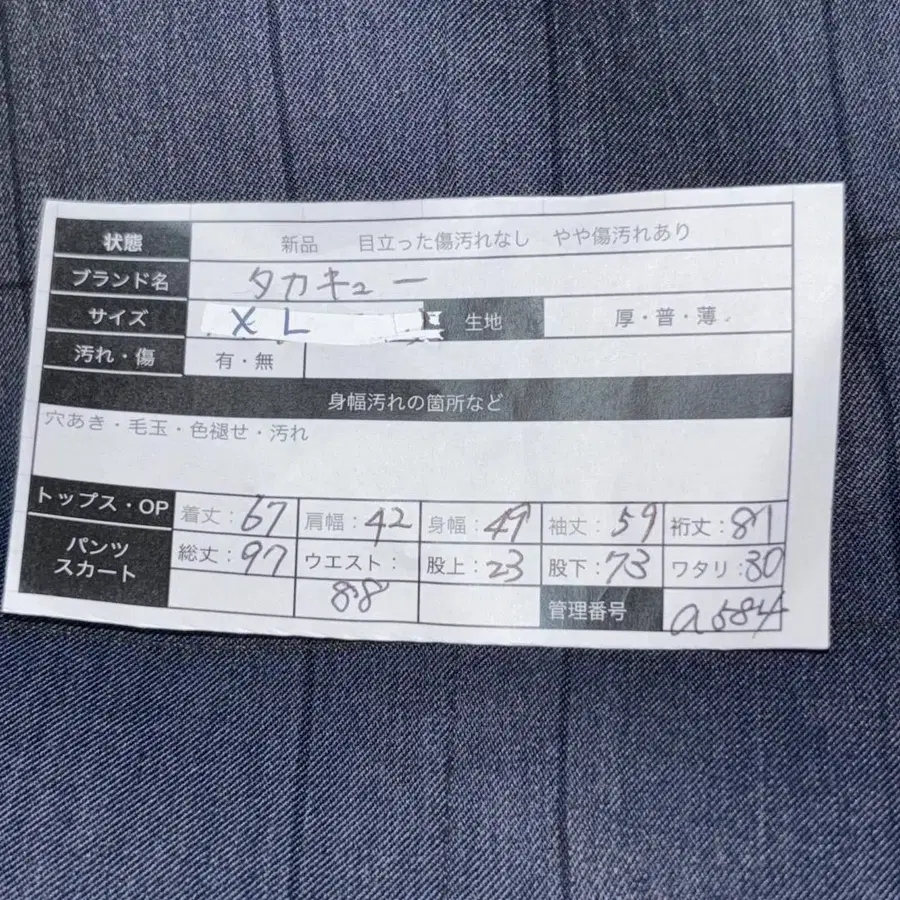 状態 新品 目立った傷汚れなし やや傷汚れあり
ブランド名 タカキュー
サイズ XL 生地 厚・普・薄
汚れ・傷 有・無
身幅汚れの箇所など
穴あき・毛玉・色褪せ・汚れ
トップス・OP 着丈:67 肩幅:42 身幅:49 袖丈:59 裄丈:81
パンツ スカート 総丈:97 ウエスト: 股上:23 股下:73 ワタリ:30
88 管理番号 a584